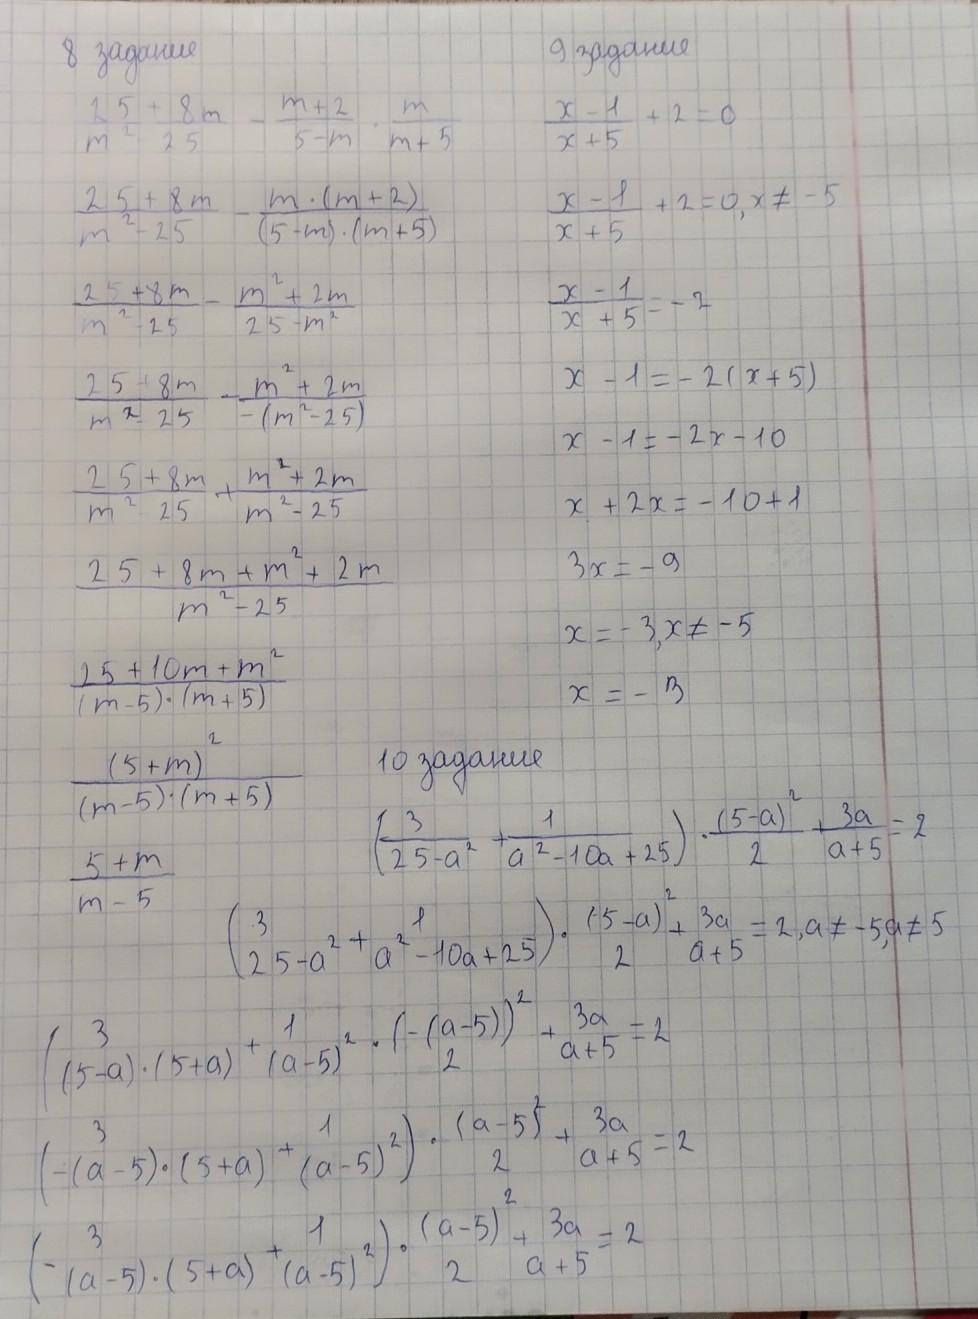 8 задание
(25 + 8m)/(m² - 25) - (m+2)/(5-m) · m/(m+5)
(25+8m)/(m²-25) - (m·(m+2))/((5-m)·(m+5))
(25+8m)/(m²-25) - (m²+2m)/(25-m²)
(25+8m)/(m²-25) - (m²+2m)/(-(m²-25))
(25+8m)/(m²-25) + (m²+2m)/(m²-25)
(25+8m+m²+2m)/(m²-25)
(25+10m+m²)/((m-5)·(m+5))
(5+m)²/((m-5)·(m+5))
(5+m)/(m-5)
9 задание
(x-1)/(x+5) + 2 = 0
(x-1)/(x+5) + 2 = 0, x ≠ -5
(x-1)/(x+5) = -2
x - 1 = -2(x+5)
x - 1 = -2x - 10
x + 2x = -10 + 1
3x = -9
x = -3, x ≠ -5
x = -3
10 задание
(3/(25-a²) + 1/(a²-10a+25)) · (5-a)²/2 + 3a/(a+5) = 2
(3/(25-a²) + 1/(a²-10a+25)) · (5-a)²/2 + 3a/(a+5) = 2, a ≠ -5, a ≠ 5
(3/((5-a)·(5+a)) + 1/(a-5)² · (-(a-5))²/2 + 3a/(a+5) = 2
(3/(-(a-5)·(5+a)) + 1/(a-5)²) · (a-5)²/2 + 3a/(a+5) = 2
(-3/((a-5)·(5+a)) + 1/(a-5)²) · (a-5)²/2 + 3a/(a+5) = 2